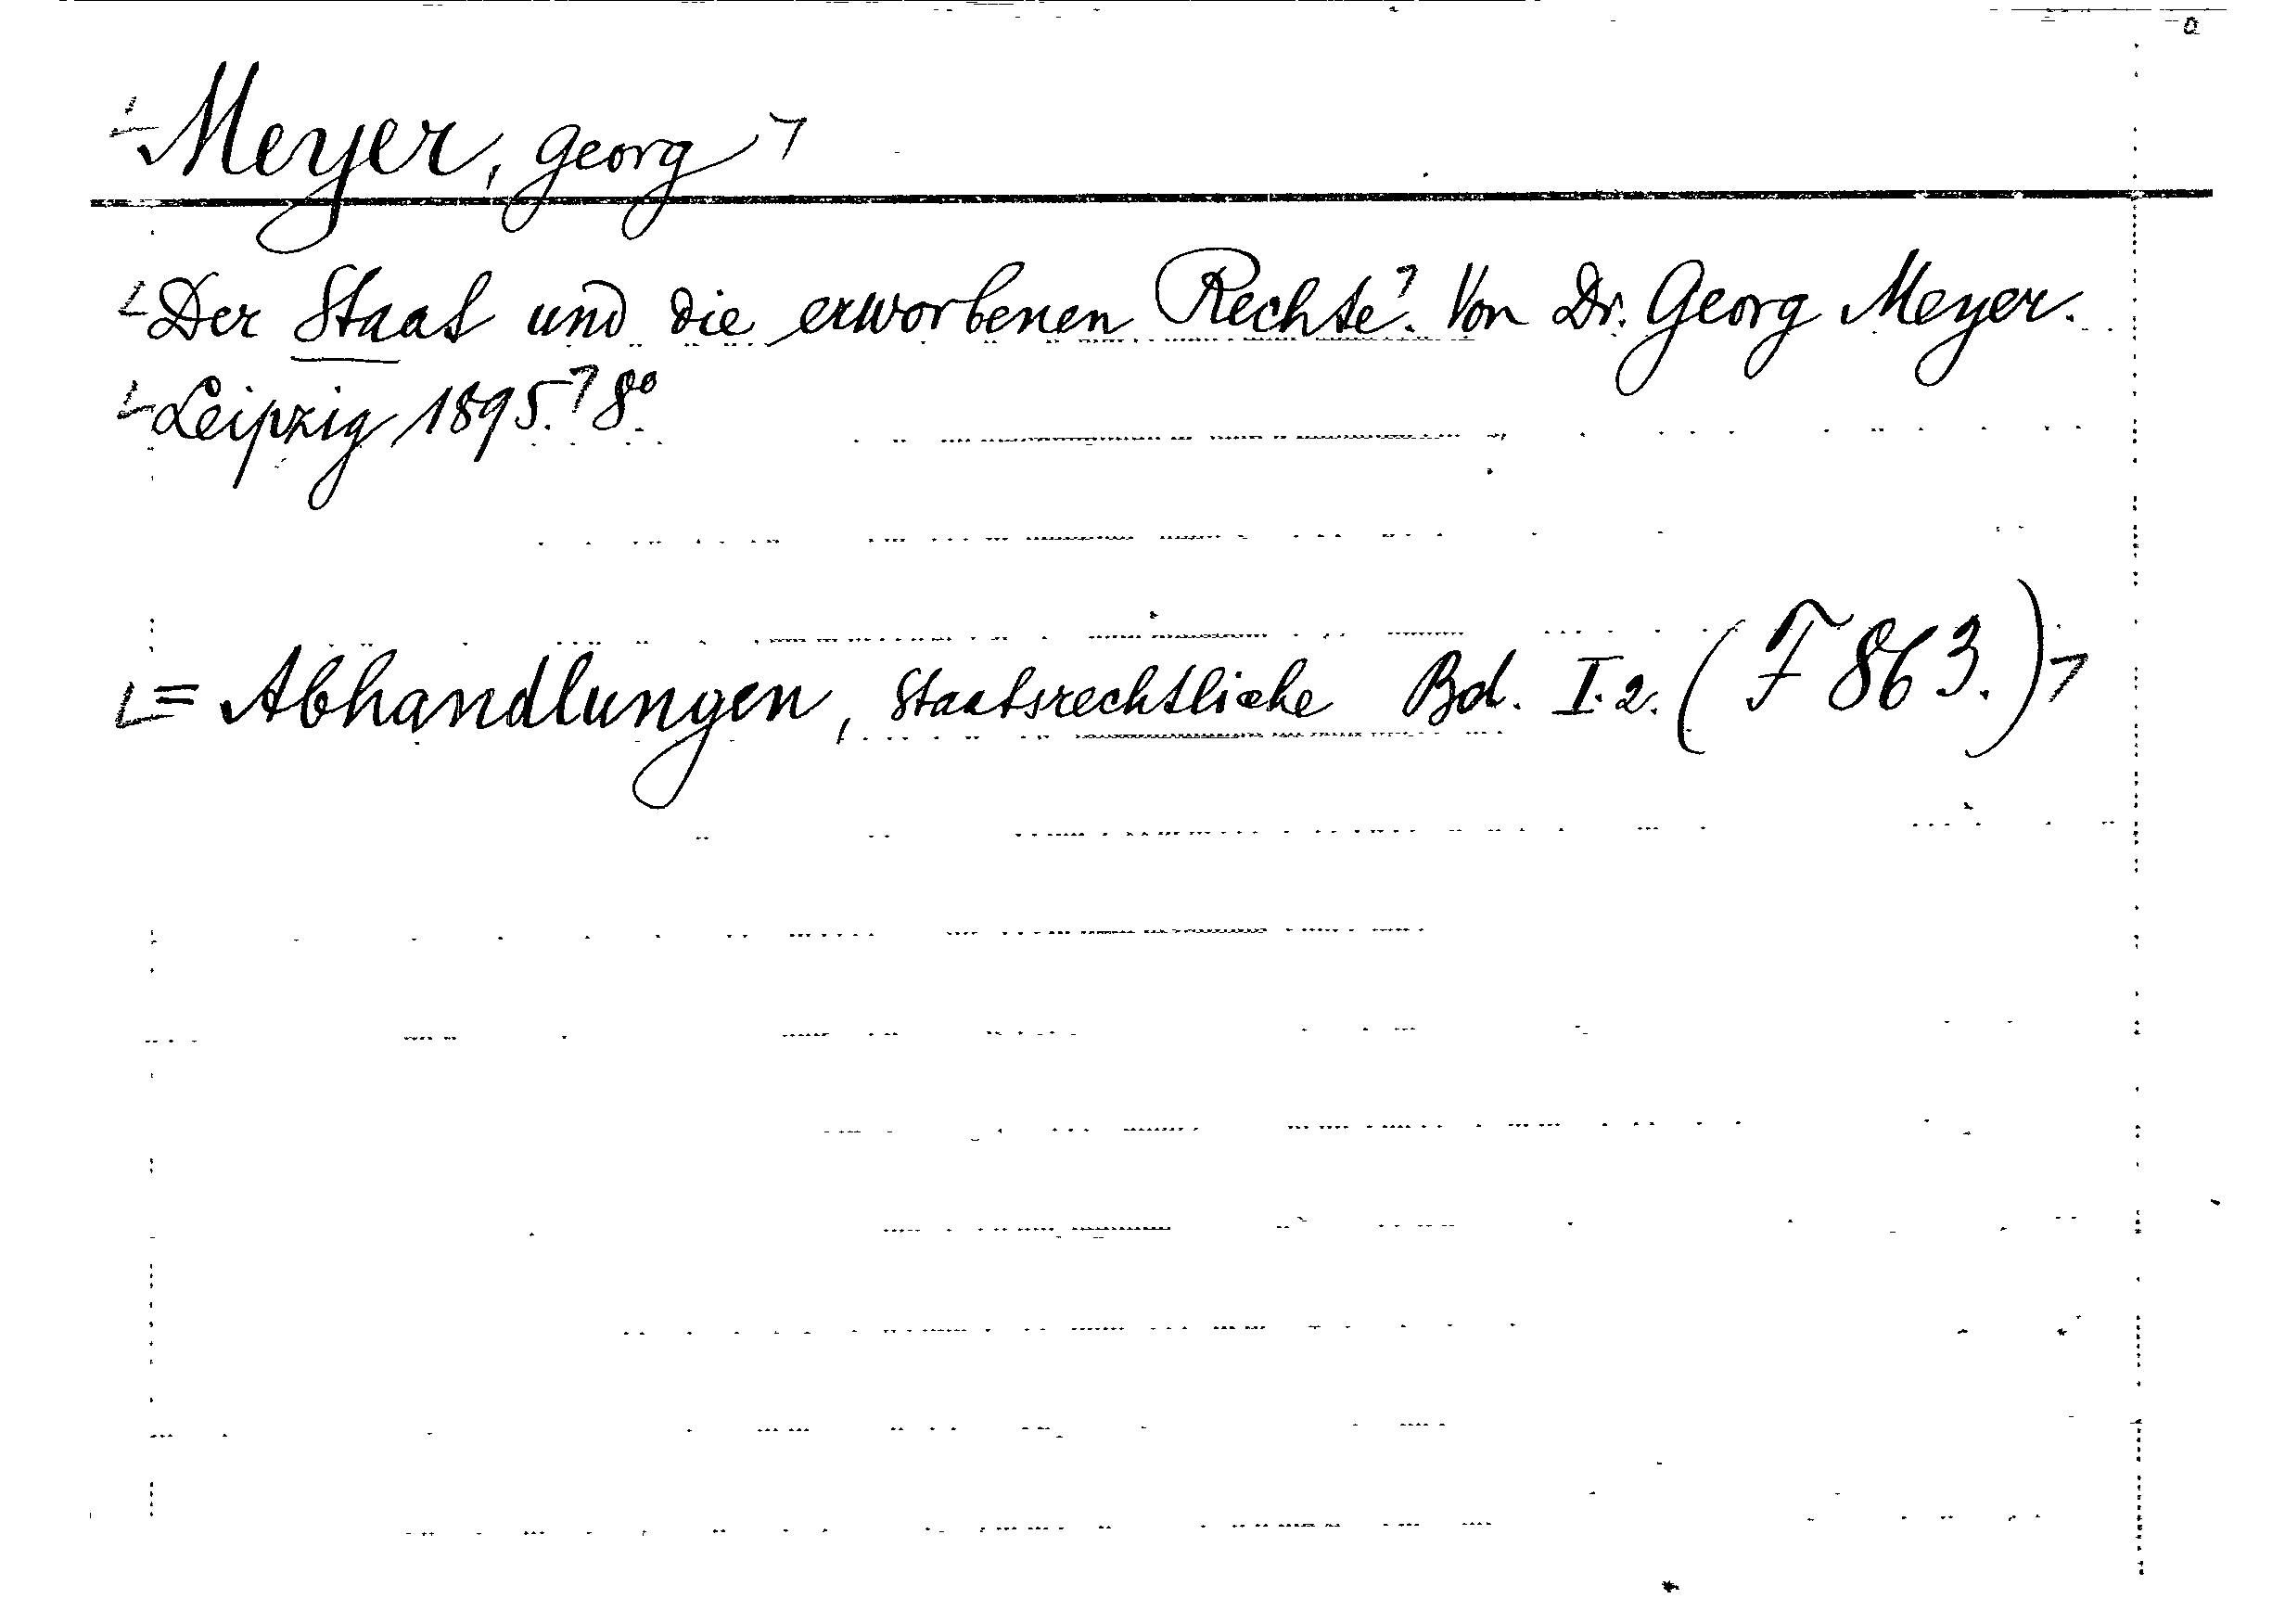 Meyer, Georg
Der Staat und die erworbenen Rechte. Von Dr. Georg Meyer.
Leipzig 1895. 8°.
= Abhandlungen, Staatsrechtliche Bd. I.2. (F 863.)